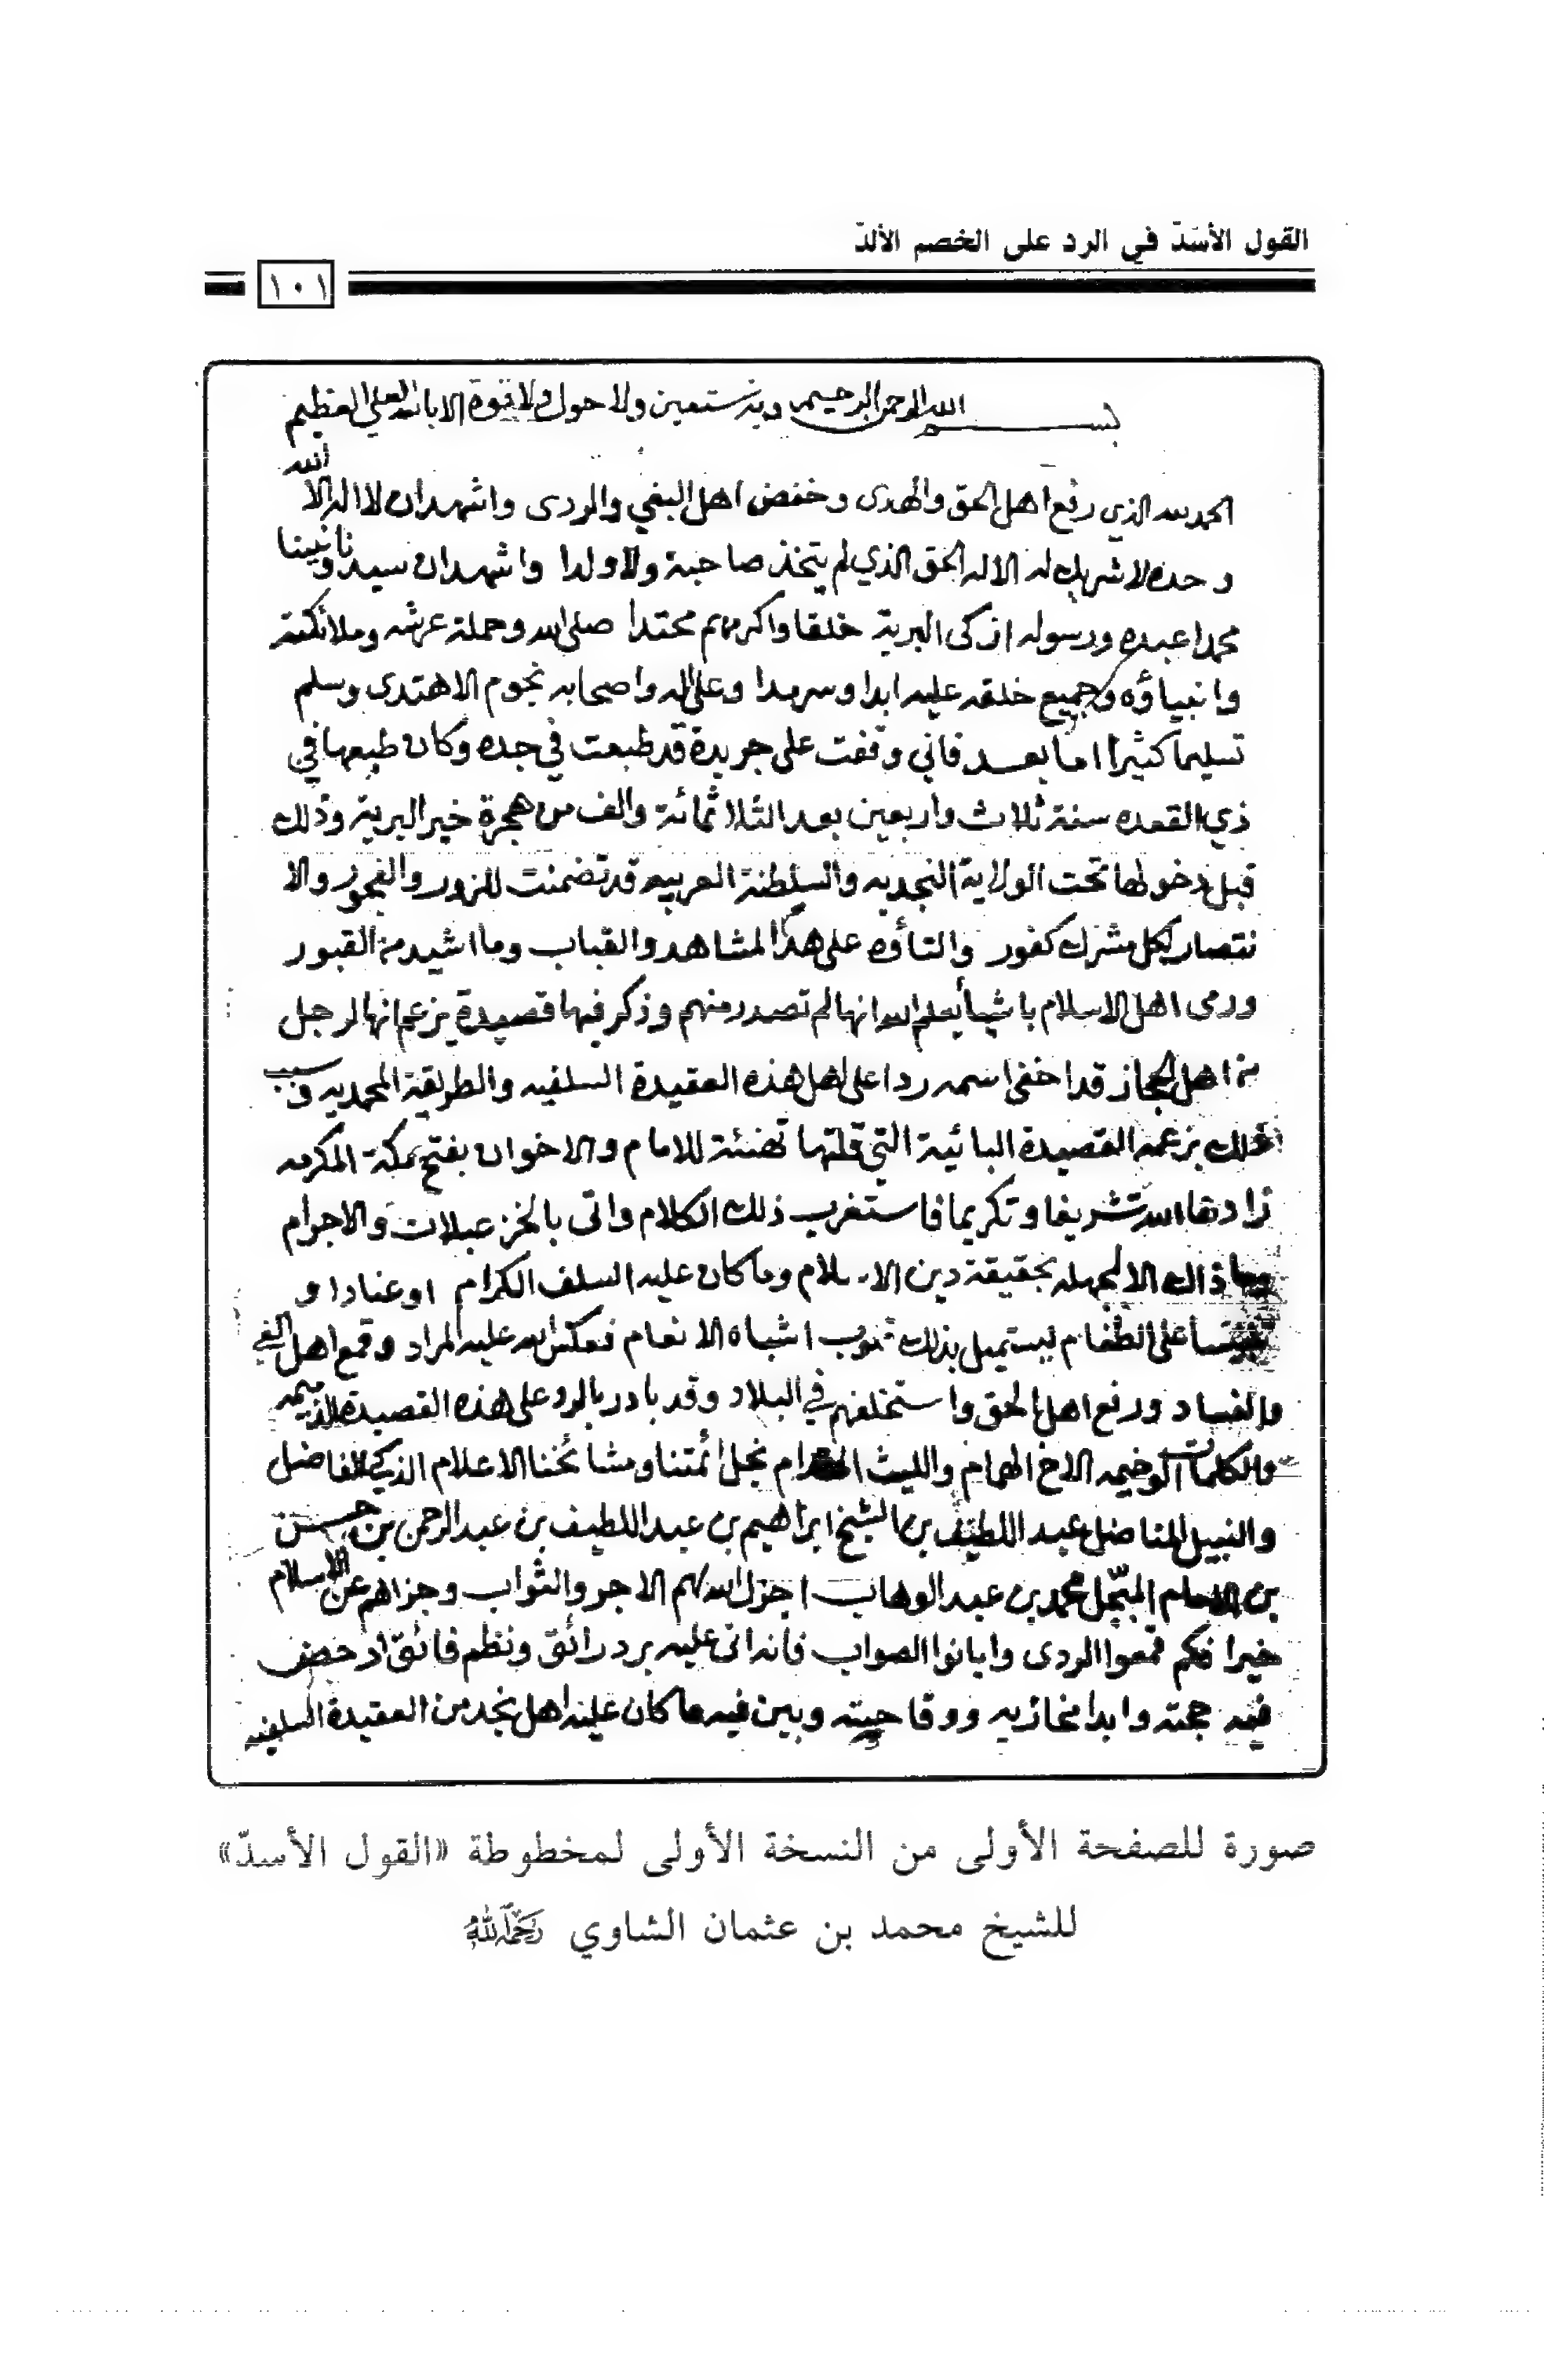 القول الأسَدّ في الرد على الخصم الألدّ
١٠١
بسم الله الرحمن الرحيم وبه نستعين ولا حول ولا قوة الا بالله العلي العظيم
الحمد لله الذي رفع اهل الحق والهدى وخفض اهل البغي والردى واشهد ان لا اله الا الله
وحده لا شريك له الاله الحق الذي لم يتخذ صاحبة ولا ولدا واشهد ان سيدنا ونبينا
محمدا عبده ورسوله ازكى البرية خلقا واكرمهم محتدا صلى الله وحملة عرشه وملائكته
وانبياؤه وجميع خلقه عليه ابدا وسرمدا وعلى اله واصحابه نجوم الاهتدى وسلم
تسليما كثيرا اما بعد فاني وقفت على جريدة قد طبعت في جده وكان طبعها في
ذي القعده سنة ثلاث واربعين بعد الثلاثمائة والف من هجرة خير البرية وذلك
قبل دخولها تحت الولاية النجديه والسلطنة العربيه قد تضمنت للزور والفجور والا
نتصار لكل مشرك كفور والتأوه على هدم المشاهد والقباب وما اشيد من القبور
ورمى اهل الاسلام باشيأ يعلم الله انها لم تصدر منهم وذكر فيها قصيدة يزعم انها لرجل
من اهل الحجاز قد اخفى اسمه ردا على اهل هذه العقيدة السلفيه والطريقة المحمديه وسبب
ذلك بزعمه القصيدة البائية التي قلتها تهنئة للامام والاخوان بفتح مكة المكرمه
زادها الله تشريفا وتكريما فاستغرب ذلك الكلام واتى بالخزعبلات والاجرام
وما ذاك الا لجهله بحقيقة دين الاسلام وما كان عليه السلف الكرام او عنادا و
على الطغام ليستميل بذلك قلوب اشباه الانعام فعكس الله عليه المراد وقمع اهل الغي
والفساد ورفع اهل الحق واستخلفهم في البلاد وقد بادر بالرد على هذه القصيدة الذميمه
والكلمات الوخيمه الاخ الهمام والليث المقدام نجل أئمتنا ومشائخنا الاعلام الذكي الفاضل
والنبيل المناضل عبد اللطيف بن الشيخ ابراهيم بن عبد اللطيف بن عبد الرحمن بن حسن
بن الامام المبجّل محمد بن عبد الوهاب اجزل الله لهم الاجر والثواب وجزاهم عن الاسلام
خيرا فكم قمعوا الردى وابانوا الصواب فانه اتى عليه برد رائق ونظم فائق ادحض
فيه حجته وابدا مخازيه ووقاحيته وبين فيه ما كان عليه اهل نجد من العقيدة السلفيه
صورة للصفحة الأولى من النسخة الأولى لمخطوطة «القول الأسدّ»
للشيخ محمد بن عثمان الشاوي رحمه الله